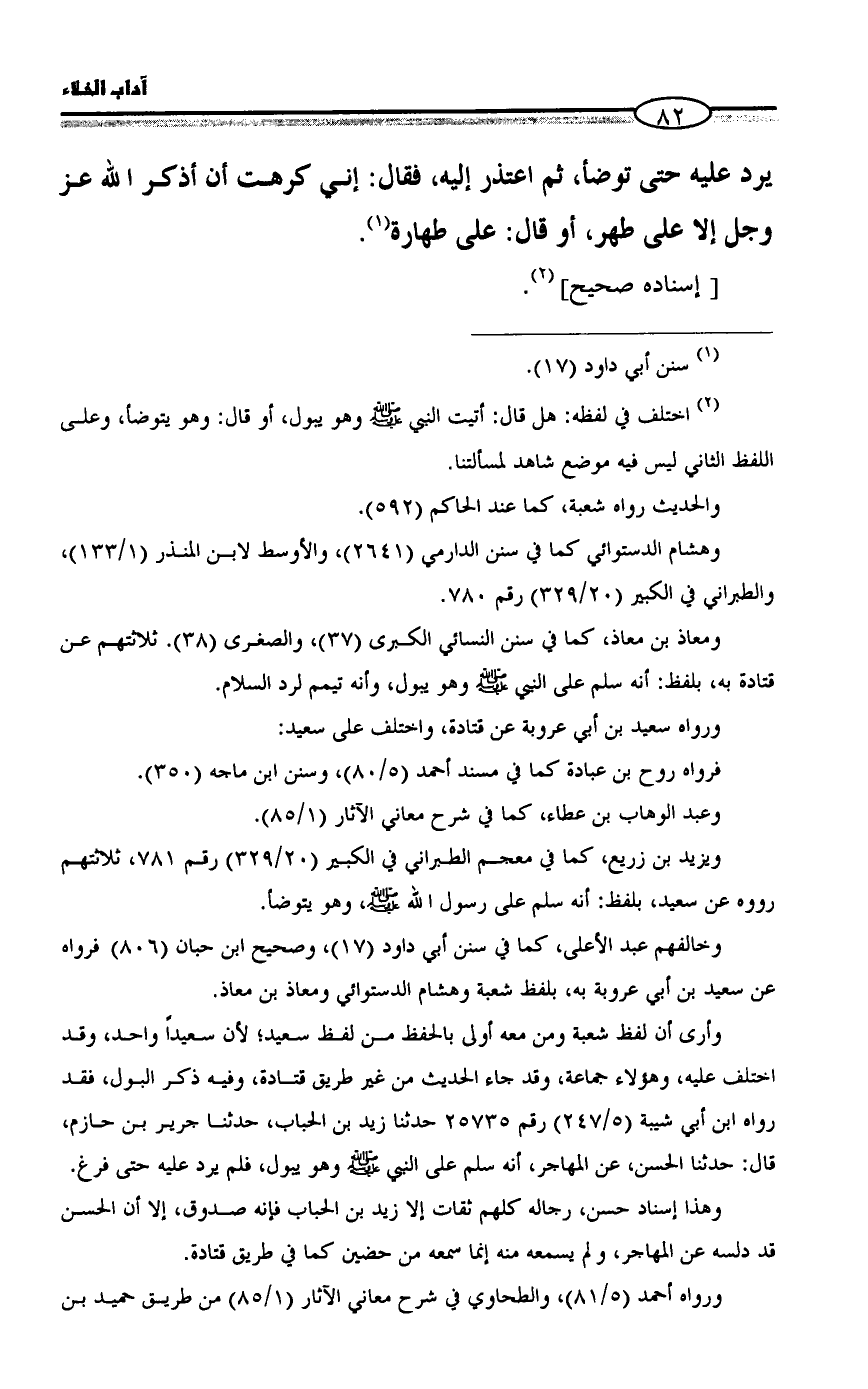 آداب الخلاء
٨٢
يرد عليه حتى توضأ، ثم اعتذر إليه، فقال: إني كرهت أن أذكر الله عز
وجل إلا على طهر، أو قال: على طهارة(١).
[ إسناده صحيح](٢).
(١) سنن أبي داود (١٧).
(٢) اختلف في لفظه: هل قال: أتيت النبي ﷺ وهو يبول، أو قال: وهو يتوضأ، وعلى
اللفظ الثاني ليس فيه موضع شاهد لمسألتنا.
والحديث رواه شعبة، كما عند الحاكم (٥٩٢).
وهشام الدستوائي كما في سنن الدارمي (٢٦٤١)، والأوسط لابن المنذر (١٣٣/١)،
والطبراني في الكبير (٣٢٩/٢٠) رقم ٧٨٠.
ومعاذ بن معاذ، كما في سنن النسائي الكبرى (٣٧)، والصغرى (٣٨). ثلاثتهم عن
قتادة به، بلفظ: أنه سلم على النبي ﷺ وهو يبول، وأنه تيمم لرد السلام.
ورواه سعيد بن أبي عروبة عن قتادة، واختلف على سعيد:
فرواه روح بن عبادة كما في مسند أحمد (٨٠/٥)، وسنن ابن ماجه (٣٥٠).
وعبد الوهاب بن عطاء، كما في شرح معاني الآثار (٨٥/١).
ويزيد بن زريع، كما في معجم الطبراني في الكبير (٣٢٩/٢٠) رقم ٧٨١، ثلاثتهم
رووه عن سعيد، بلفظ: أنه سلم على رسول الله ﷺ، وهو يتوضأ.
وخالفهم عبد الأعلى، كما في سنن أبي داود (١٧)، وصحيح ابن حبان (٨٠٦) فرواه
عن سعيد بن أبي عروبة به، بلفظ شعبة وهشام الدستوائي ومعاذ بن معاذ.
وأرى أن لفظ شعبة ومن معه أولى بالحفظ من لفظ سعيد؛ لأن سعيداً واحد، وقد
اختلف عليه، وهؤلاء جماعة، وقد جاء الحديث من غير طريق قتادة، وفيه ذكر البول، فقد
رواه ابن أبي شيبة (٢٤٧/٥) رقم ٢٥٧٣٥ حدثنا زيد بن الحباب، حدثنا جرير بن حازم،
قال: حدثنا الحسن، عن المهاجر، أنه سلم على النبي ﷺ وهو يبول، فلم يرد عليه حتى فرغ.
وهذا إسناد حسن، رجاله كلهم ثقات إلا زيد بن الحباب فإنه صدوق، إلا أن الحسن
قد دلسه عن المهاجر، ولم يسمعه منه إنما سمعه من حضين كما في طريق قتادة.
ورواه أحمد (٨١/٥)، والطحاوي في شرح معاني الآثار (٨٥/١) من طريق حميد بن